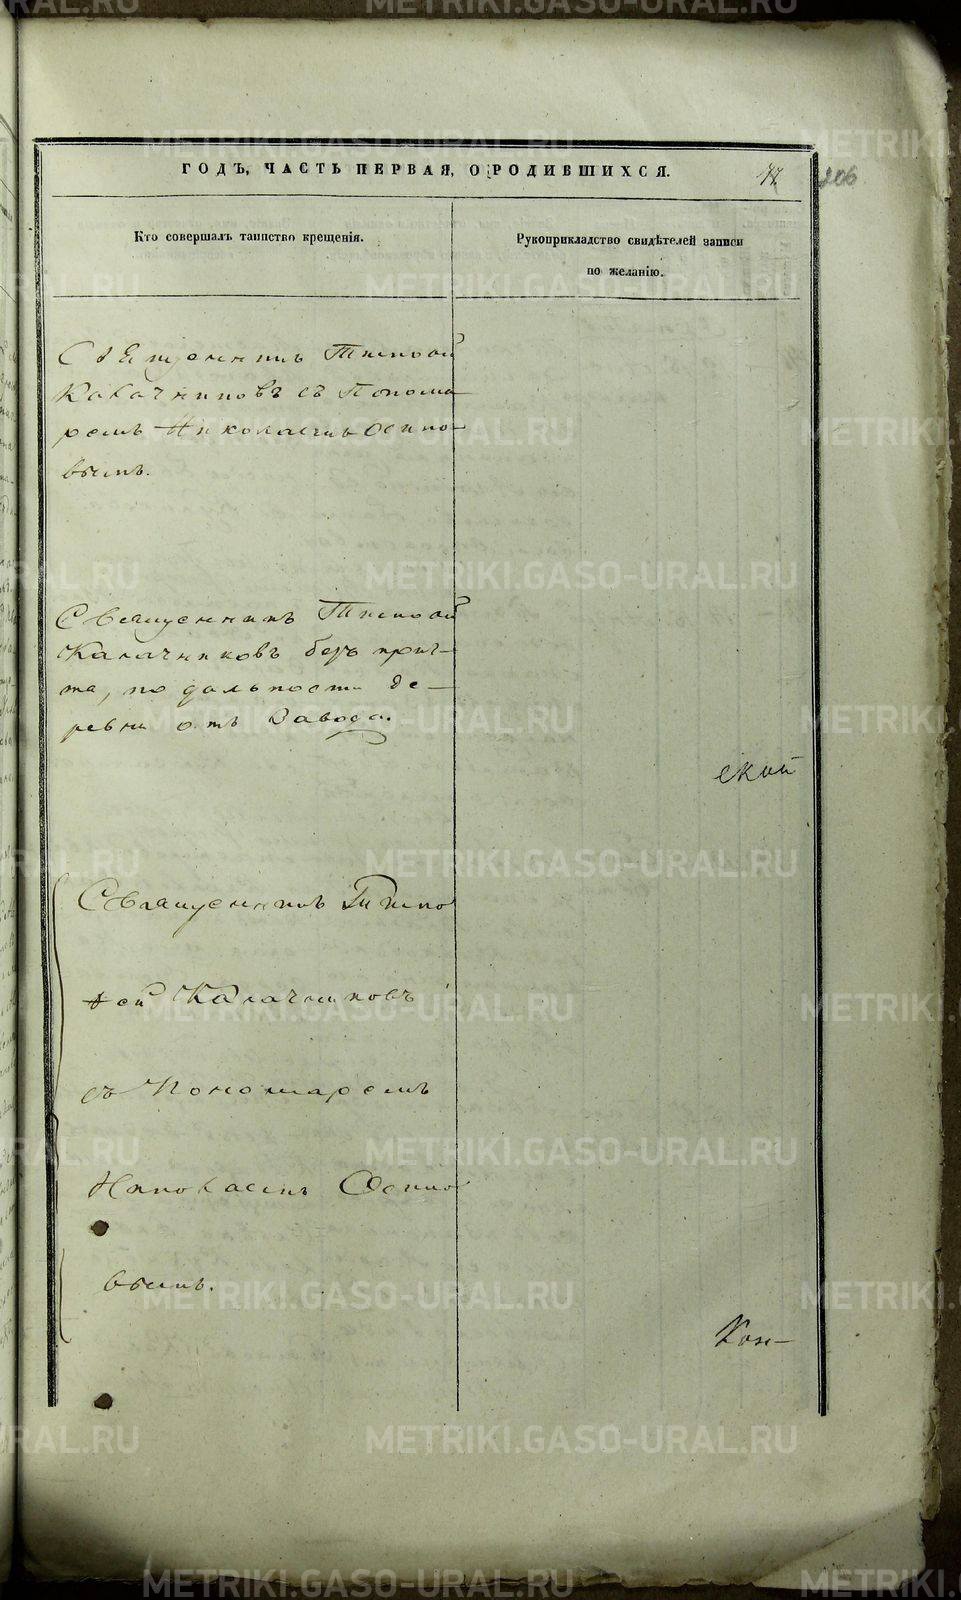 ГОДЪ, ЧАСТЬ ПЕРВАЯ, О РОДИВШИХСЯ.
206
Кто совершалъ таинство крещенія.
Рукоприкладство свидѣтелей записи
по желанію.
Священникъ Тимоѳей
Калачниковъ съ Понома
ремъ Николаемъ Осипо-
вымъ.
Священникъ Тимоѳей
Калачниковъ безъ прич-
та, по дальности де-
ревни отъ Завода.
ской
Священникъ Тимо
ѳей Калачниковъ
съ Пономаремъ
Николаемъ Осипо
вымъ.
Кон-
METRIKI.GASO-URAL.RU